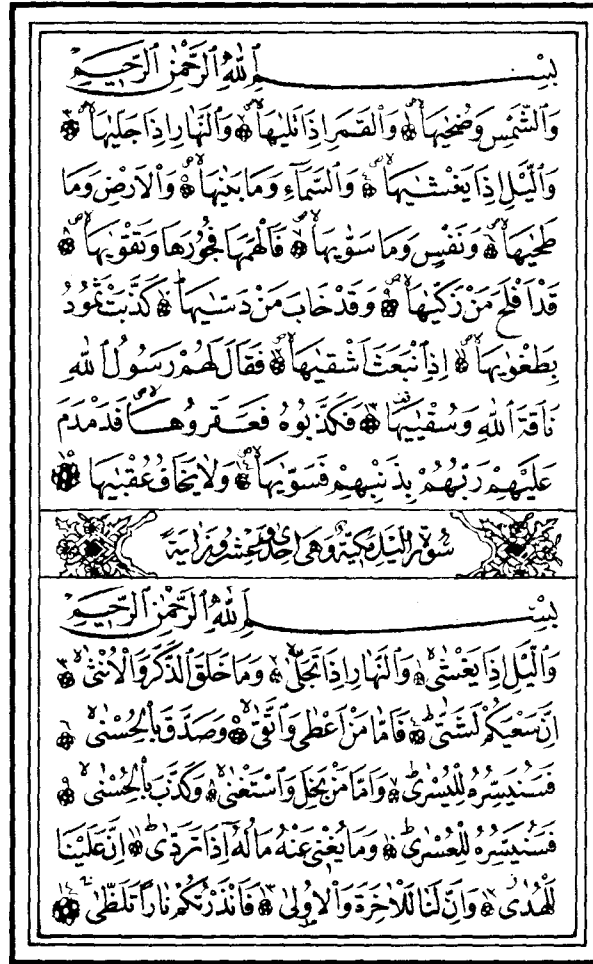 بِسْمِ اللّٰهِ الرَّحْمٰنِ الرَّحِيمِ
وَالشَّمْسِ وَضُحٰيهَا ۙ۝١ وَالْقَمَرِ اِذَا تَلٰيهَا ۙ۝٢ وَالنَّهَارِ اِذَا جَلّٰيهَا ۙ۝٣
وَالَّيْلِ اِذَا يَغْشٰيهَا ۙ۝٤ وَالسَّمَآءِ وَمَا بَنٰيهَا ۙ۝٥ وَالْاَرْضِ وَمَا
طَحٰيهَا ۙ۝٦ وَنَفْسٍ وَمَا سَوّٰيهَا ۙ۝٧ فَاَلْهَمَهَا فُجُورَهَا وَتَقْوٰيهَا ۙ۝٨
قَدْ اَفْلَحَ مَنْ زَكّٰيهَا ۙ۝٩ وَقَدْ خَابَ مَنْ دَسّٰيهَا ۝١٠ كَذَّبَتْ ثَمُودُ
بِطَغْوٰيهَا ۙ۝١١ اِذِ انْبَعَثَ اَشْقٰيهَا ۙ۝١٢ فَقَالَ لَهُمْ رَسُولُ اللّٰهِ
نَاقَةَ اللّٰهِ وَسُقْيٰيهَا ۝١٣ فَكَذَّبُوهُ فَعَقَرُوهَا ۙ فَدَمْدَمَ
عَلَيْهِمْ رَبُّهُمْ بِذَنْبِهِمْ فَسَوّٰيهَا ۙ۝١٤ وَلَا يَخَافُ عُقْبٰيهَا ۝١٥
سُورَةُ الَّيْلِ مَكِّيَّةٌ وَهِىَ اِحْدٰى وَعِشْرُونَ اٰيَةً
بِسْمِ اللّٰهِ الرَّحْمٰنِ الرَّحِيمِ
وَالَّيْلِ اِذَا يَغْشٰى ۙ۝١ وَالنَّهَارِ اِذَا تَجَلّٰى ۙ۝٢ وَمَا خَلَقَ الذَّكَرَ وَالْاُنْثٰى ۙ۝٣
اِنَّ سَعْيَكُمْ لَشَتّٰى ۝٤ فَاَمَّا مَنْ اَعْطٰى وَاتَّقٰى ۙ۝٥ وَصَدَّقَ بِالْحُسْنٰى ۙ۝٦
فَسَنُيَسِّرُهُ لِلْيُسْرٰى ۝٧ وَاَمَّا مَنْ بَخِلَ وَاسْتَغْنٰى ۙ۝٨ وَكَذَّبَ بِالْحُسْنٰى ۙ۝٩
فَسَنُيَسِّرُهُ لِلْعُسْرٰى ۝١٠ وَمَا يُغْنٖى عَنْهُ مَالُهُٓ اِذَا تَرَدّٰى ۝١١ اِنَّ عَلَيْنَا
لَلْهُدٰى ۝١٢ وَاِنَّ لَنَا لَلْاٰخِرَةَ وَالْاُولٰى ۝١٣ فَاَنْذَرْتُكُمْ نَارًا تَلَظّٰى ۝١٤